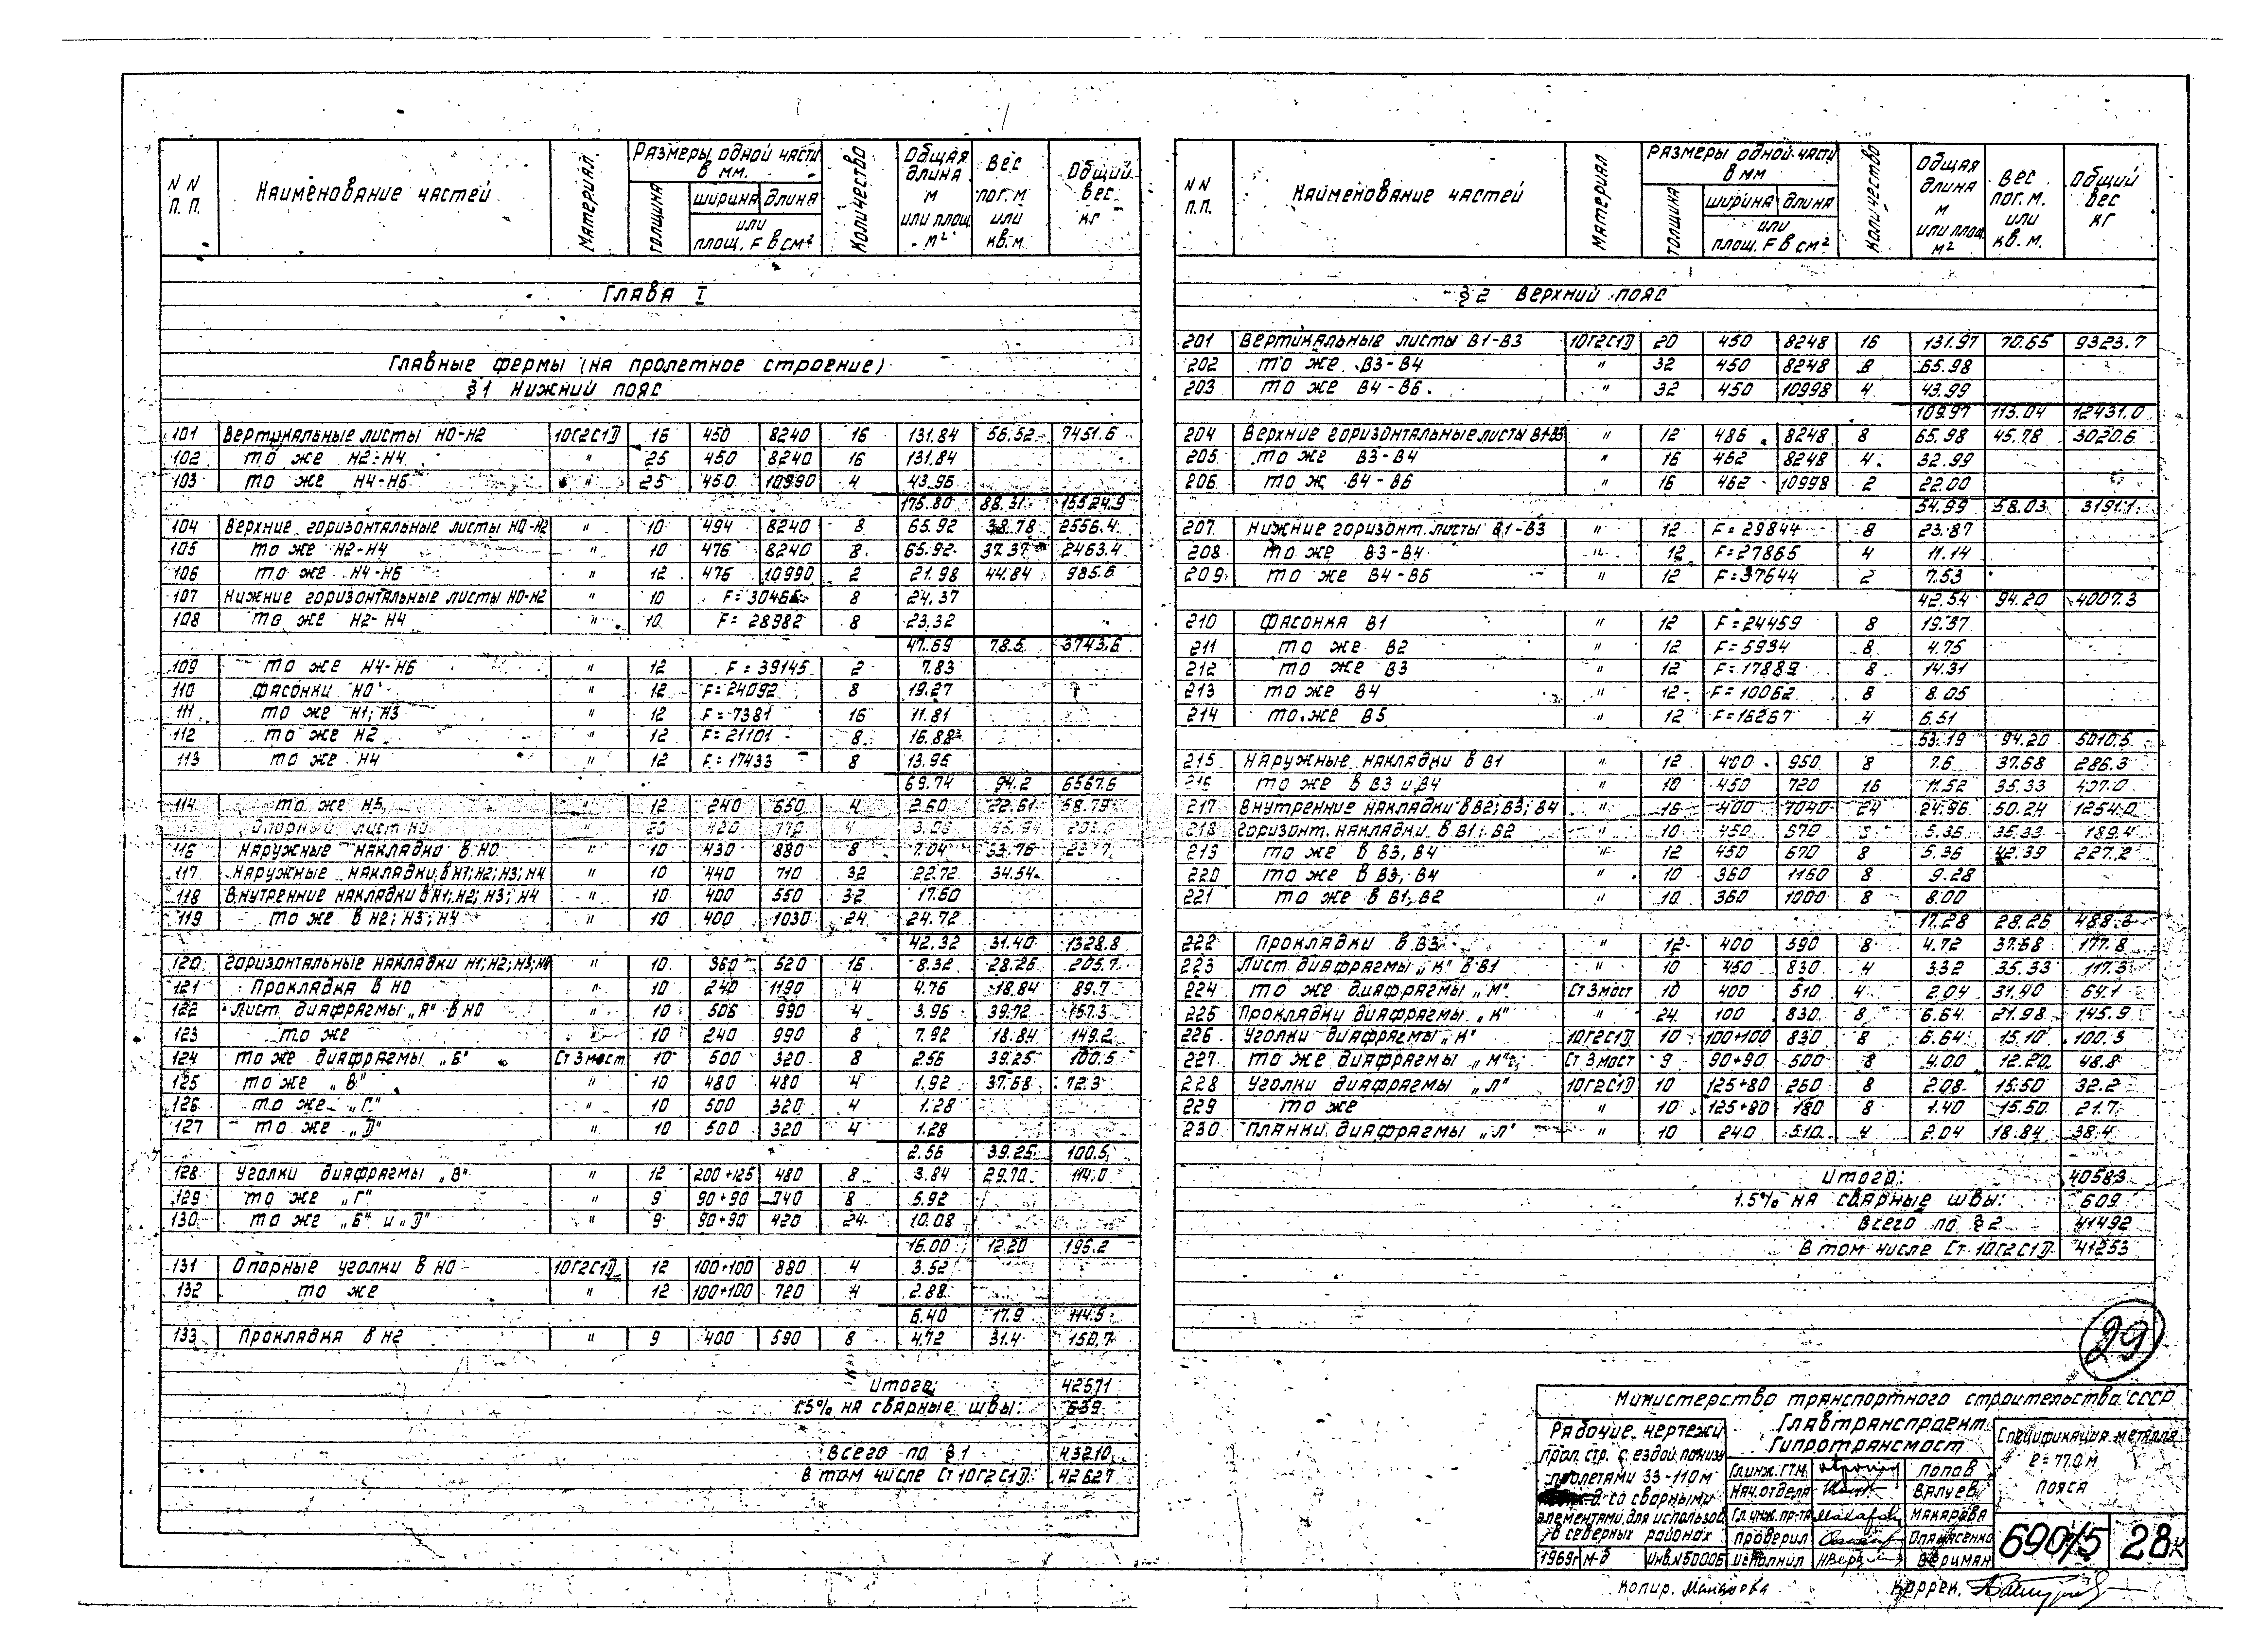 N N п.п. Наименование частей Материал Размеры одной части в мм. толщина ширина длина или площ. F в см² Количество Общая длина м или площ. м² Вес пог. м или кв. м Общий вес кг
Глава I
Главные фермы (на пролетное строение)
§1 Нижний пояс
101 Вертикальные листы Н0-Н2 10Г2С1Д 16 450 8240 16 131.84 56.52 7451.6
102 то же Н2-Н4 " 25 450 8240 16 131.84
103 то же Н4-Н6 " 25 450 10990 4 43.96
175.80 88.31 15524.9
104 Верхние горизонтальные листы Н0-Н2 " 10 494 8240 8 65.92 38.78 2556.4
105 то же Н2-Н4 " 10 476 8240 8 65.92 37.37 2463.4
106 то же Н4-Н6 " 12 476 10990 2 21.98 44.84 985.6
107 Нижние горизонтальные листы Н0-Н2 " 10 F=30465 8 24.37
108 то же Н2-Н4 " 10 F=28982 8 23.32
47.69 78.5 3743.6
109 то же Н4-Н6 12 F=39145 2 7.83
110 Фасонки Н0 " 12 F=24092 8 19.27
111 то же Н1; Н3 " 12 F=7381 16 11.81
112 то же Н2 " 12 F=21101 8 16.88
113 то же Н4 " 12 F=17433 8 13.95
69.74 94.2 6567.6
114 то же Н5 " 12 240 650 4 2.60 22.61 58.79
115 Опорный лист Н0 " 20 420 770 4 3.08
116 Наружные накладки в Н0 " 10 430 880 8 7.04 33.76
117 Наружные накладки в Н1; Н2; Н3; Н4 " 10 440 710 32 22.72 34.54
118 Внутренние накладки в Н1; Н2; Н3; Н4 " 10 400 550 32 17.60
119 то же в Н2; Н3; Н4 " 10 400 1030 24 24.72
42.32 31.40 1328.8
120 Горизонтальные накладки Н1; Н2; Н3; Н4 " 10 360 520 16 8.32 28.26 205.7
121 Прокладка в Н0 " 10 240 1190 4 4.76 18.84 89.7
122 Лист диафрагмы „А" в Н0 " 10 506 990 4 3.96 39.72 157.3
123 то же " 10 240 990 8 7.92 18.84 149.2
124 то же диафрагмы „Б" Ст 3 мост 10 500 320 8 2.56 39.25 100.5
125 то же „В" " 10 480 480 4 1.92 37.68 72.3
126 то же „Г" " 10 500 320 4 1.28
127 то же „Д" " 10 500 320 4 1.28
2.56 39.25 100.5
128 Уголки диафрагмы „В" " 12 200+125 480 8 3.84 29.70 114.0
129 то же „Г" " 9 90+90 740 8 5.92
130 то же „Б" и „Д" " 9 90+90 420 24 10.08
16.00 12.20 195.2
131 Опорные уголки в Н0 10Г2С1Д 12 100+100 880 4 3.52
132 то же " 12 100+100 720 4 2.88
6.40 17.9 114.5
133 Прокладка в Н2 " 9 400 590 8 4.72 31.4 150.7
Итого: 42571
1.5% на сварные швы: 639
Всего по §1 43210
В том числе Ст 10Г2С1Д: 42627
N N п.п. Наименование частей Материал Размеры одной части в мм толщина ширина длина или площ. F в см² Количество Общая длина м или площ. м² Вес пог. м. или кв. м. Общий вес кг
§2 Верхний пояс
201 Вертикальные листы В1-В3 10Г2С1Д 20 450 8248 16 131.97 70.65 9323.7
202 то же В3-В4 " 32 450 8248 8 65.98
203 то же В4-В6 " 32 450 10998 4 43.99
109.97 113.04 12431.0
204 Верхние горизонтальные листы В1-В3 " 12 486 8248 8 65.98 45.78 3020.6
205 то же В3-В4 " 16 462 8248 4 32.99
206 то ж В4-В6 " 16 462 10998 2 22.00
54.99 58.03 3191.1
207 Нижние горизонт. листы В1-В3 " 12 F=29844 8 23.87
208 то же В3-В4 " 12 F=27865 4 11.14
209 то же В4-В6 " 12 F=37644 2 7.53
42.54 94.20 4007.3
210 Фасонка В1 " 12 F=24459 8 19.57
211 то же В2 " 12 F=5934 8 4.75
212 то же В3 " 12 F=17889 8 14.31
213 то же В4 " 12 F=10062 8 8.05
214 то же В5 " 12 F=16267 4 6.51
53.19 94.20 5010.5
215 Наружные накладки в В1 " 12 400 950 8 7.6 37.68 286.3
216 то же в В3 и В4 " 10 450 720 16 11.52 35.33 407.0
217 Внутренние накладки в В2; В3; В4 " 16 400 1040 24 24.96 50.24 1254.0
218 Горизонт. накладки в В1; В2 " 10 450 670 8 5.36 35.33 189.4
219 то же в В3, В4 " 12 450 670 8 5.36 42.39 227.2
220 то же в В3, В4 " 10 360 1160 8 9.28
221 то же в В1, В2 " 10 360 1000 8 8.00
17.28 28.26 488.3
222 Прокладки в В3 " 12 400 590 8 4.72 37.68 177.8
223 Лист диафрагмы „К" в В1 " 10 450 830 4 3.32 35.33 117.3
224 то же диафрагмы „М" Ст 3 мост 10 400 510 4 2.04 31.40 64.1
225 Прокладки диафрагмы „К" " 24 100 830 8 6.64 21.98 145.9
226 Уголки диафрагмы „К" 10Г2С1Д 10 100+100 830 8 6.64 15.10 100.3
227 то же диафрагмы „М" Ст 3 мост 9 90+90 500 8 4.00 12.20 48.8
228 Уголки диафрагмы „Л" 10Г2С1Д 10 125+80 260 8 2.08 15.50 32.2
229 то же " 10 125+80 180 8 1.40 15.50 21.7
230 Планки диафрагмы „Л" " 10 240 510 4 2.04 18.84 38.4
Итого: 40583
1.5% на сварные швы: 609
Всего по §2 41492
В том числе Ст. 10Г2С1Д 41253
29
Министерство транспортного строительства СССР
Главтранспроект
Гипротрансмост
Рабочие чертежи
прол. стр. с ездой понизу
пролетами 33-110 м
со сварными
элементами для использов.
в северных районах
1969г М-б Инв. N 50006
Гл. инж. ГТМ Попов
Нач. отдела Валуев
Гл. инж. пр-та Макарова
Проверил Опанасенко
Исполнил Фериман
Спецификация металла
ℓ=77.0 м
Пояса
690/5 28к
Копир. Коррек.